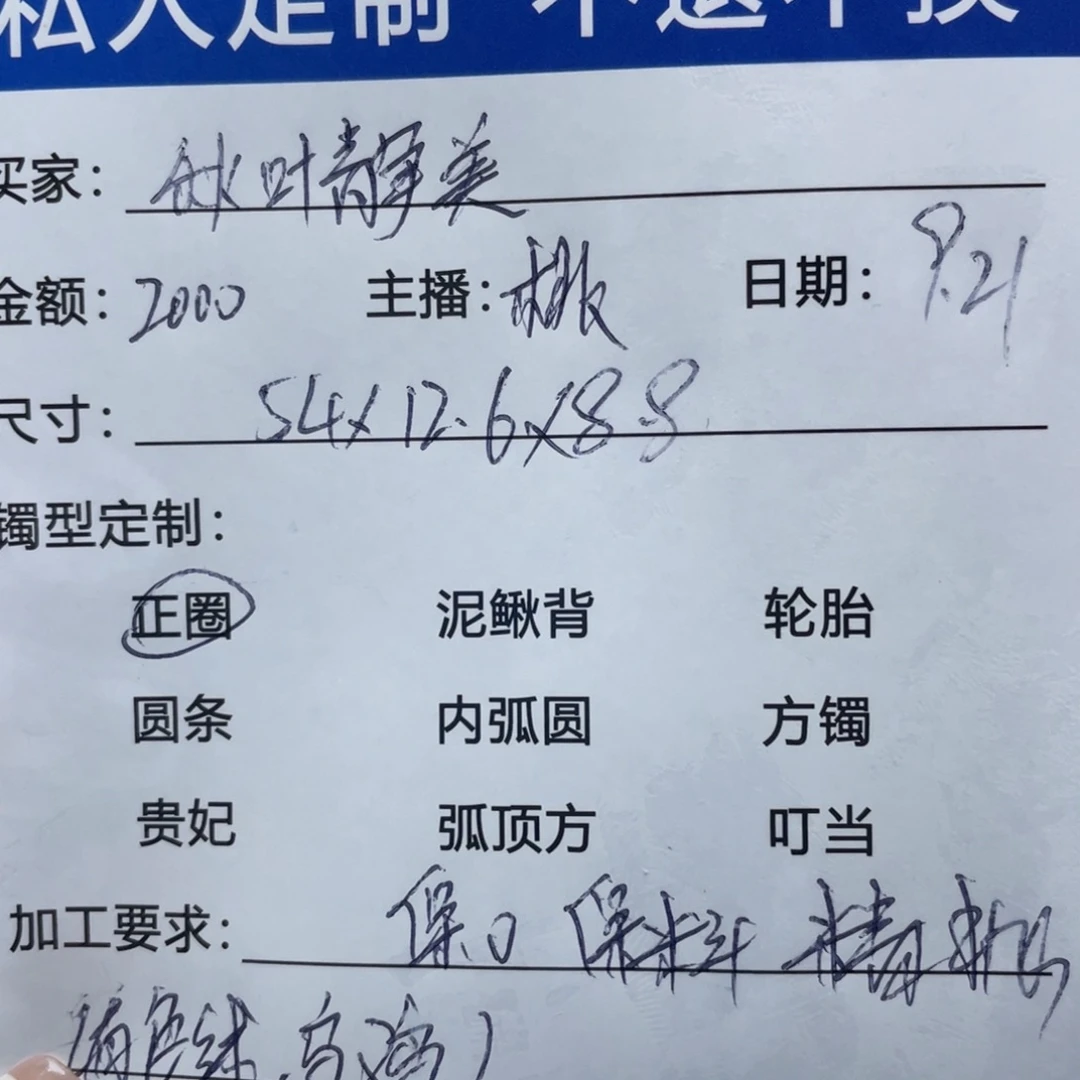 私人定制 不退不换
买家：秋叶静美
金额：2000 主播：桃 日期：9.21
尺寸：54×12.6×8.8
镯型定制：
正圈 泥鳅背 轮胎
圆条 内弧圆 方镯
贵妃 弧顶方 叮当
加工要求：保口 保料 精